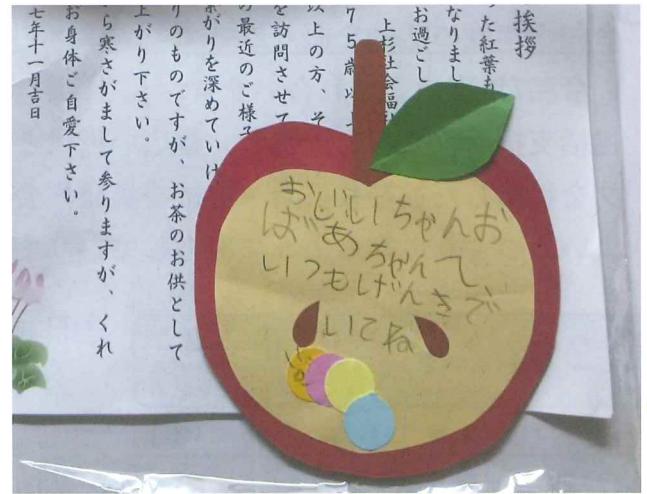 挨拶
った紅葉も
なりまし
お過ごし
上杉社会福
７５歳以上
以上の方、そ
を訪問させて
の最近のご様子
がりを深めていけ
りのものですが、お茶のお供として
上がり下さい。
ら寒さがまして参りますが、くれ
お身体ご自愛下さい。
七年十一月吉日
おじいちゃんお
ばあちゃんへ、
いつもげんきで
いてね